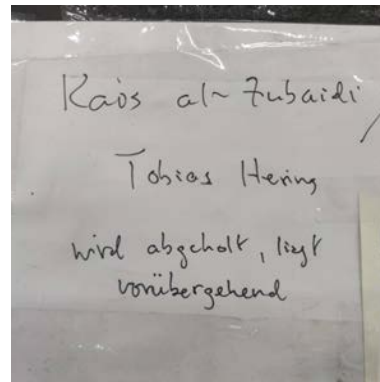 Kais al-Zubaidi
Tobias Hering
wird abgeholt, liegt
vorübergehend